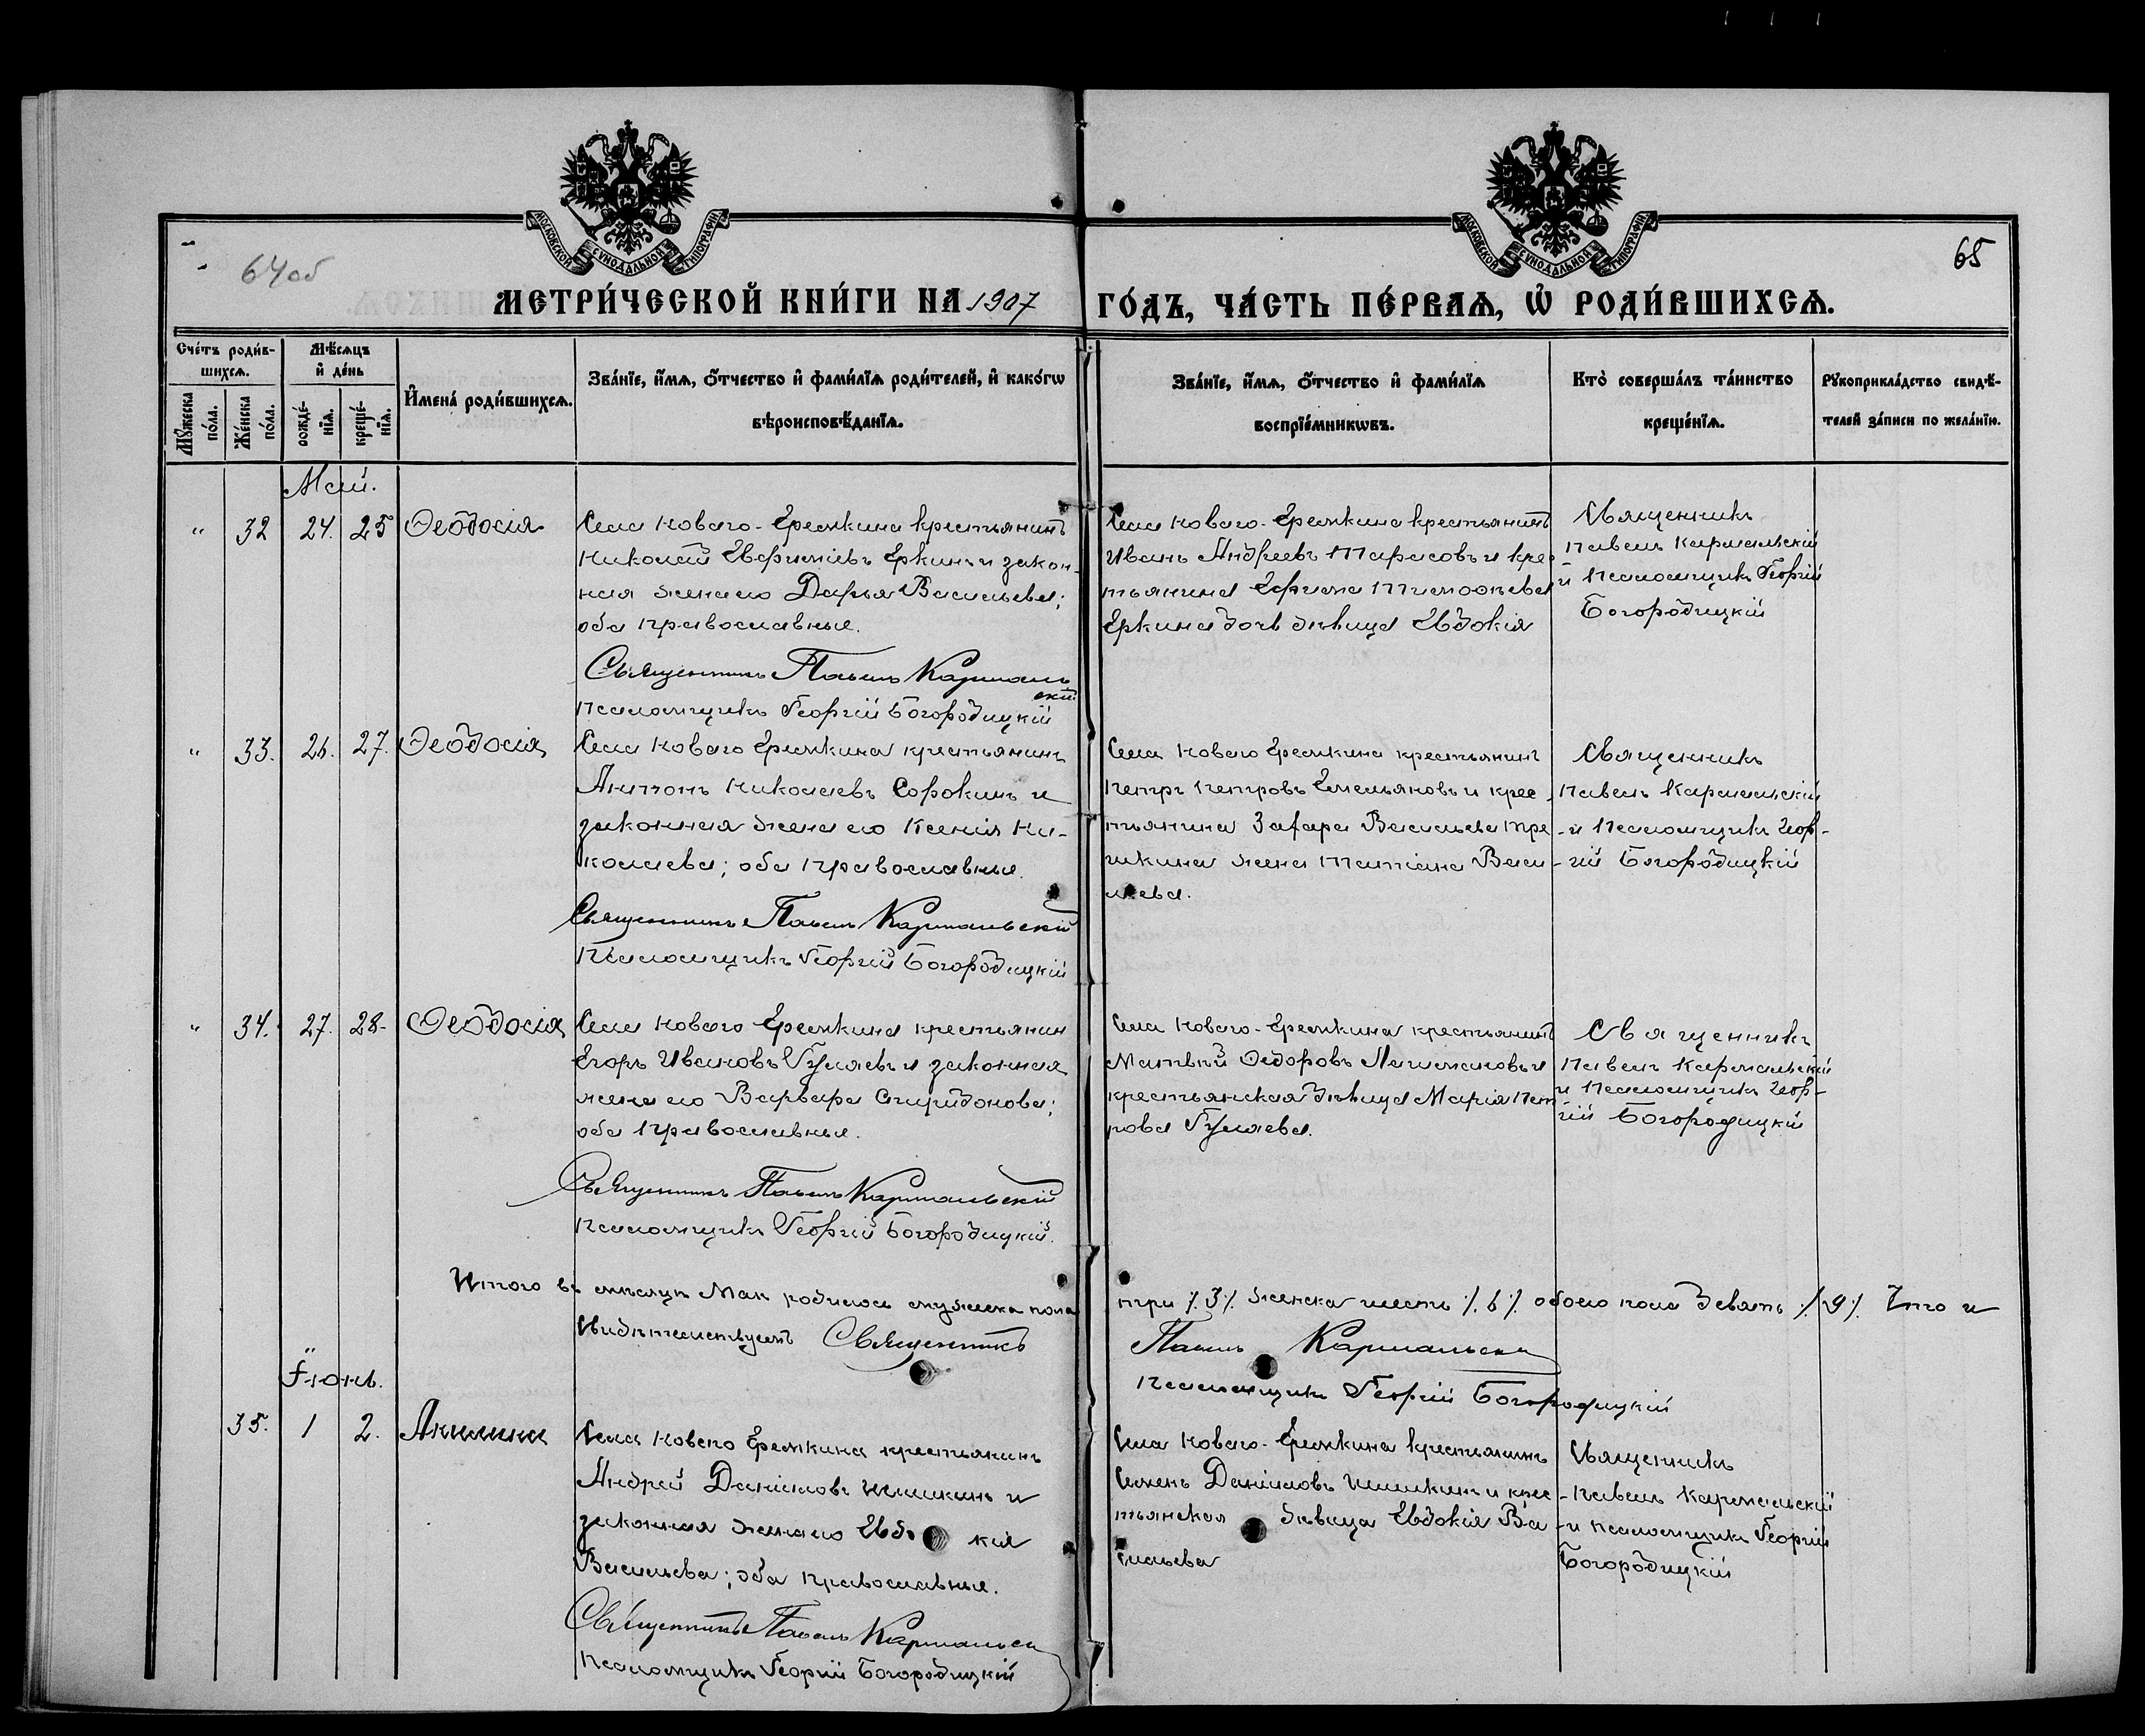 МОСКОВСКОЙ СѴНОДАЛЬНОЙ ТИПОГРАФІИ
МОСКОВСКОЙ СѴНОДАЛЬНОЙ ТИПОГРАФІИ
64об
65
МЕТРИ́ЧЕСКОЙ КНИ́ГИ НА 1907 ГО́ДЪ, ЧА́СТЬ ПЕ́РВАѦ, Ѡ҆ РОДИ́ВШИХСѦ.
Сче́тъ роди́в-
шихсѧ.
Мѣ́сѧцъ
и҆ де́нь
Мꙋ́жеска
по́ла.
Же́нска
по́ла.
рожде́-
нїѧ.
креще́-
нїѧ.
И҆мена̀ роди́вшихсѧ.
Зва́нїе, и҆́мѧ, ѻ҆́тчество и҆ фами́лїѧ роди́телей, и҆ како́гѡ
вѣроисповѣ́данїѧ.
Зва́нїе, и҆́мѧ, ѻ҆́тчество и҆ фами́лїѧ
воспрїе́мникѡвъ.
Кто̀ соверша́лъ та́инство
креще́нїѧ.
Рꙋкоприкла́дство свидѣ́-
телей за́писи по жела́нїю.
Май.
" 32 24. 25 Ѳеодосія
Села Новаго-Еремкина крестьянинъ
Николай Евфиміевъ Еркинъ и закон-
ная жена его Дарья Васильева;
оба православные.
Священникъ Павелъ Кармаль
скій
Псаломщикъ Георгій Богородицкій
Села Новаго-Еремкина крестьянинъ
Иванъ Андреевъ Тарасовъ и крес
тьянина Ефима Тимоѳеева
Еркина дочь дѣвица Евдокія
Священникъ
Павелъ Кармальскій
и Псаломщикъ Георгій
Богородицкій
" 33. 26. 27. Ѳеодосія
Села Новаго Еремкина крестьянинъ
Антонъ Николаевъ Сорокинъ и
законная жена его Ксенія Ни-
колаева; оба православные.
Священникъ Павелъ Кармальскій
Псаломщикъ Георгій Богородицкій
Села Новаго Еремкина крестьянинъ
Петръ Петровъ Емельяновъ и крес-
тьянина Захара Васильева Тре
шкина жена Татіана Васи-
льева.
Священникъ
Павелъ Кармальскій
и Псаломщикъ Геор-
гій Богородицкій
" 34. 27. 28. Ѳеодосія
Села Новаго Еремкина крестьянин
Егоръ Ивановъ Гуляевъ и законная
жена его Варвара Спиридонова;
оба православные.
Священникъ Павелъ Кармальскій
Псаломщикъ Георгій Богородицкій.
Села Новаго-Еремкина крестьянинъ
Матвѣй Ѳедоровъ и
крестьянская дѣвица Марія Пет
рова Гуляева.
Священникъ
Павелъ Кармальскій
и Псаломщикъ Геор-
гій Богородицкій
Итого въ мѣсяцѣ Маѣ родилось мужеска пола три /.3/. женска шесть /.6/. обоего пола девять /.9/. Что и
свидѣтельствуемъ Священникъ Павелъ Кармальскій
Псаломщикъ Георгій Богородицкій
Іюнь.
35. 1 2. Акилина
Села Новаго Еремкина крестьянинъ
Андрей Даніиловъ Шишкинъ и
законная жена его Евдо кія
Васильева; оба православные.
Священникъ Павелъ Кармальск
Псаломщикъ Георгій Богородицкій
Села Новаго-Еремкина крестьянинъ
Семенъ Даніиловъ Шишкинъ и крес-
тьянская дѣвица Евдокія Ва
сильева
Священникъ
Павелъ Кармальскій
и псаломщикъ Георгій
Богородицкій